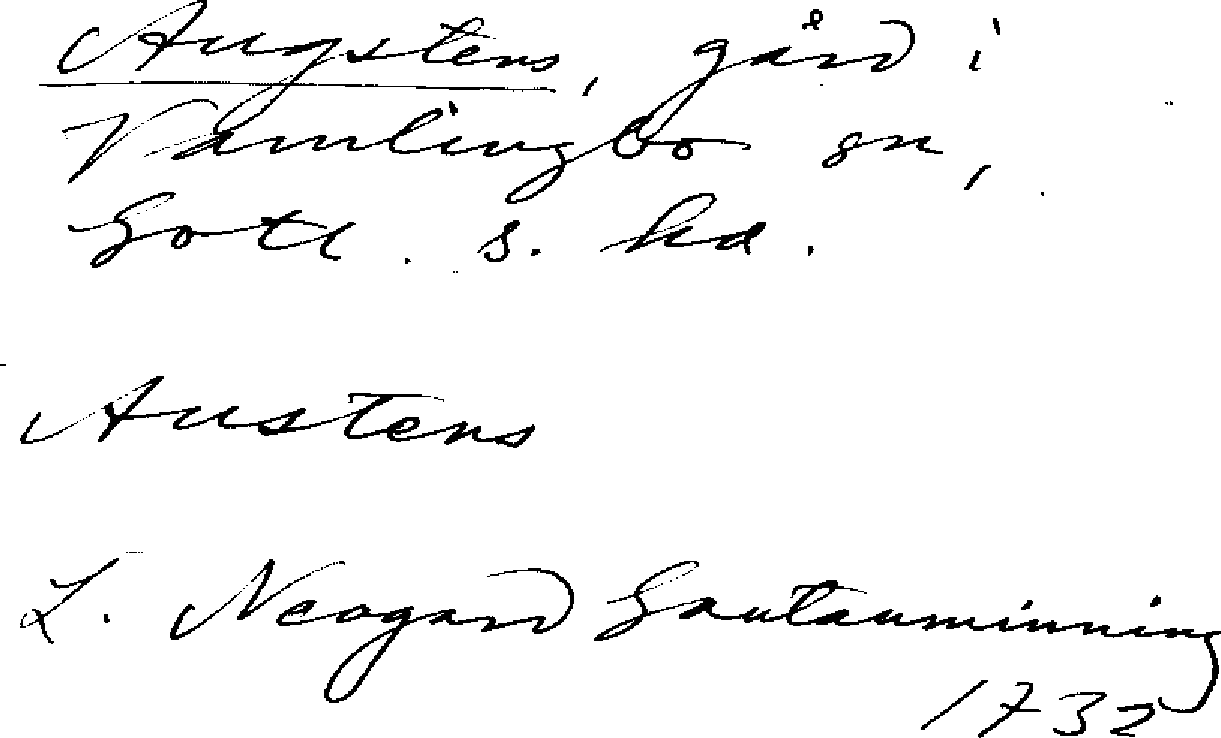 Augstens, gård i
Vamlingbo sn,
Gotl. s. hd.
Austens
L. Neogard Gautauminning
1732